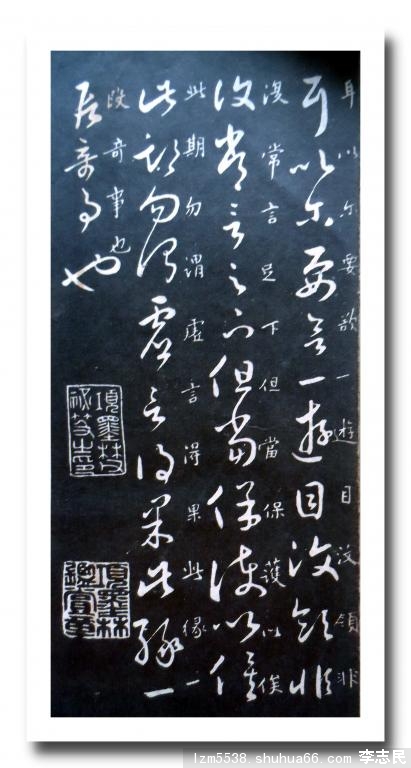 耳以尔要欲一遊目汶領非
耳以尔要欲一遊目汶領非
復常言足下但當保護以俟
復常言足下但當保護以俟
此期勿謂虛言得果此緣一
此期勿謂虛言得果此緣一
段奇事也
段奇事也
項墨林
秘笈之印
項墨林
鑑賞章
lzm5538.shuhua66.com 李志民